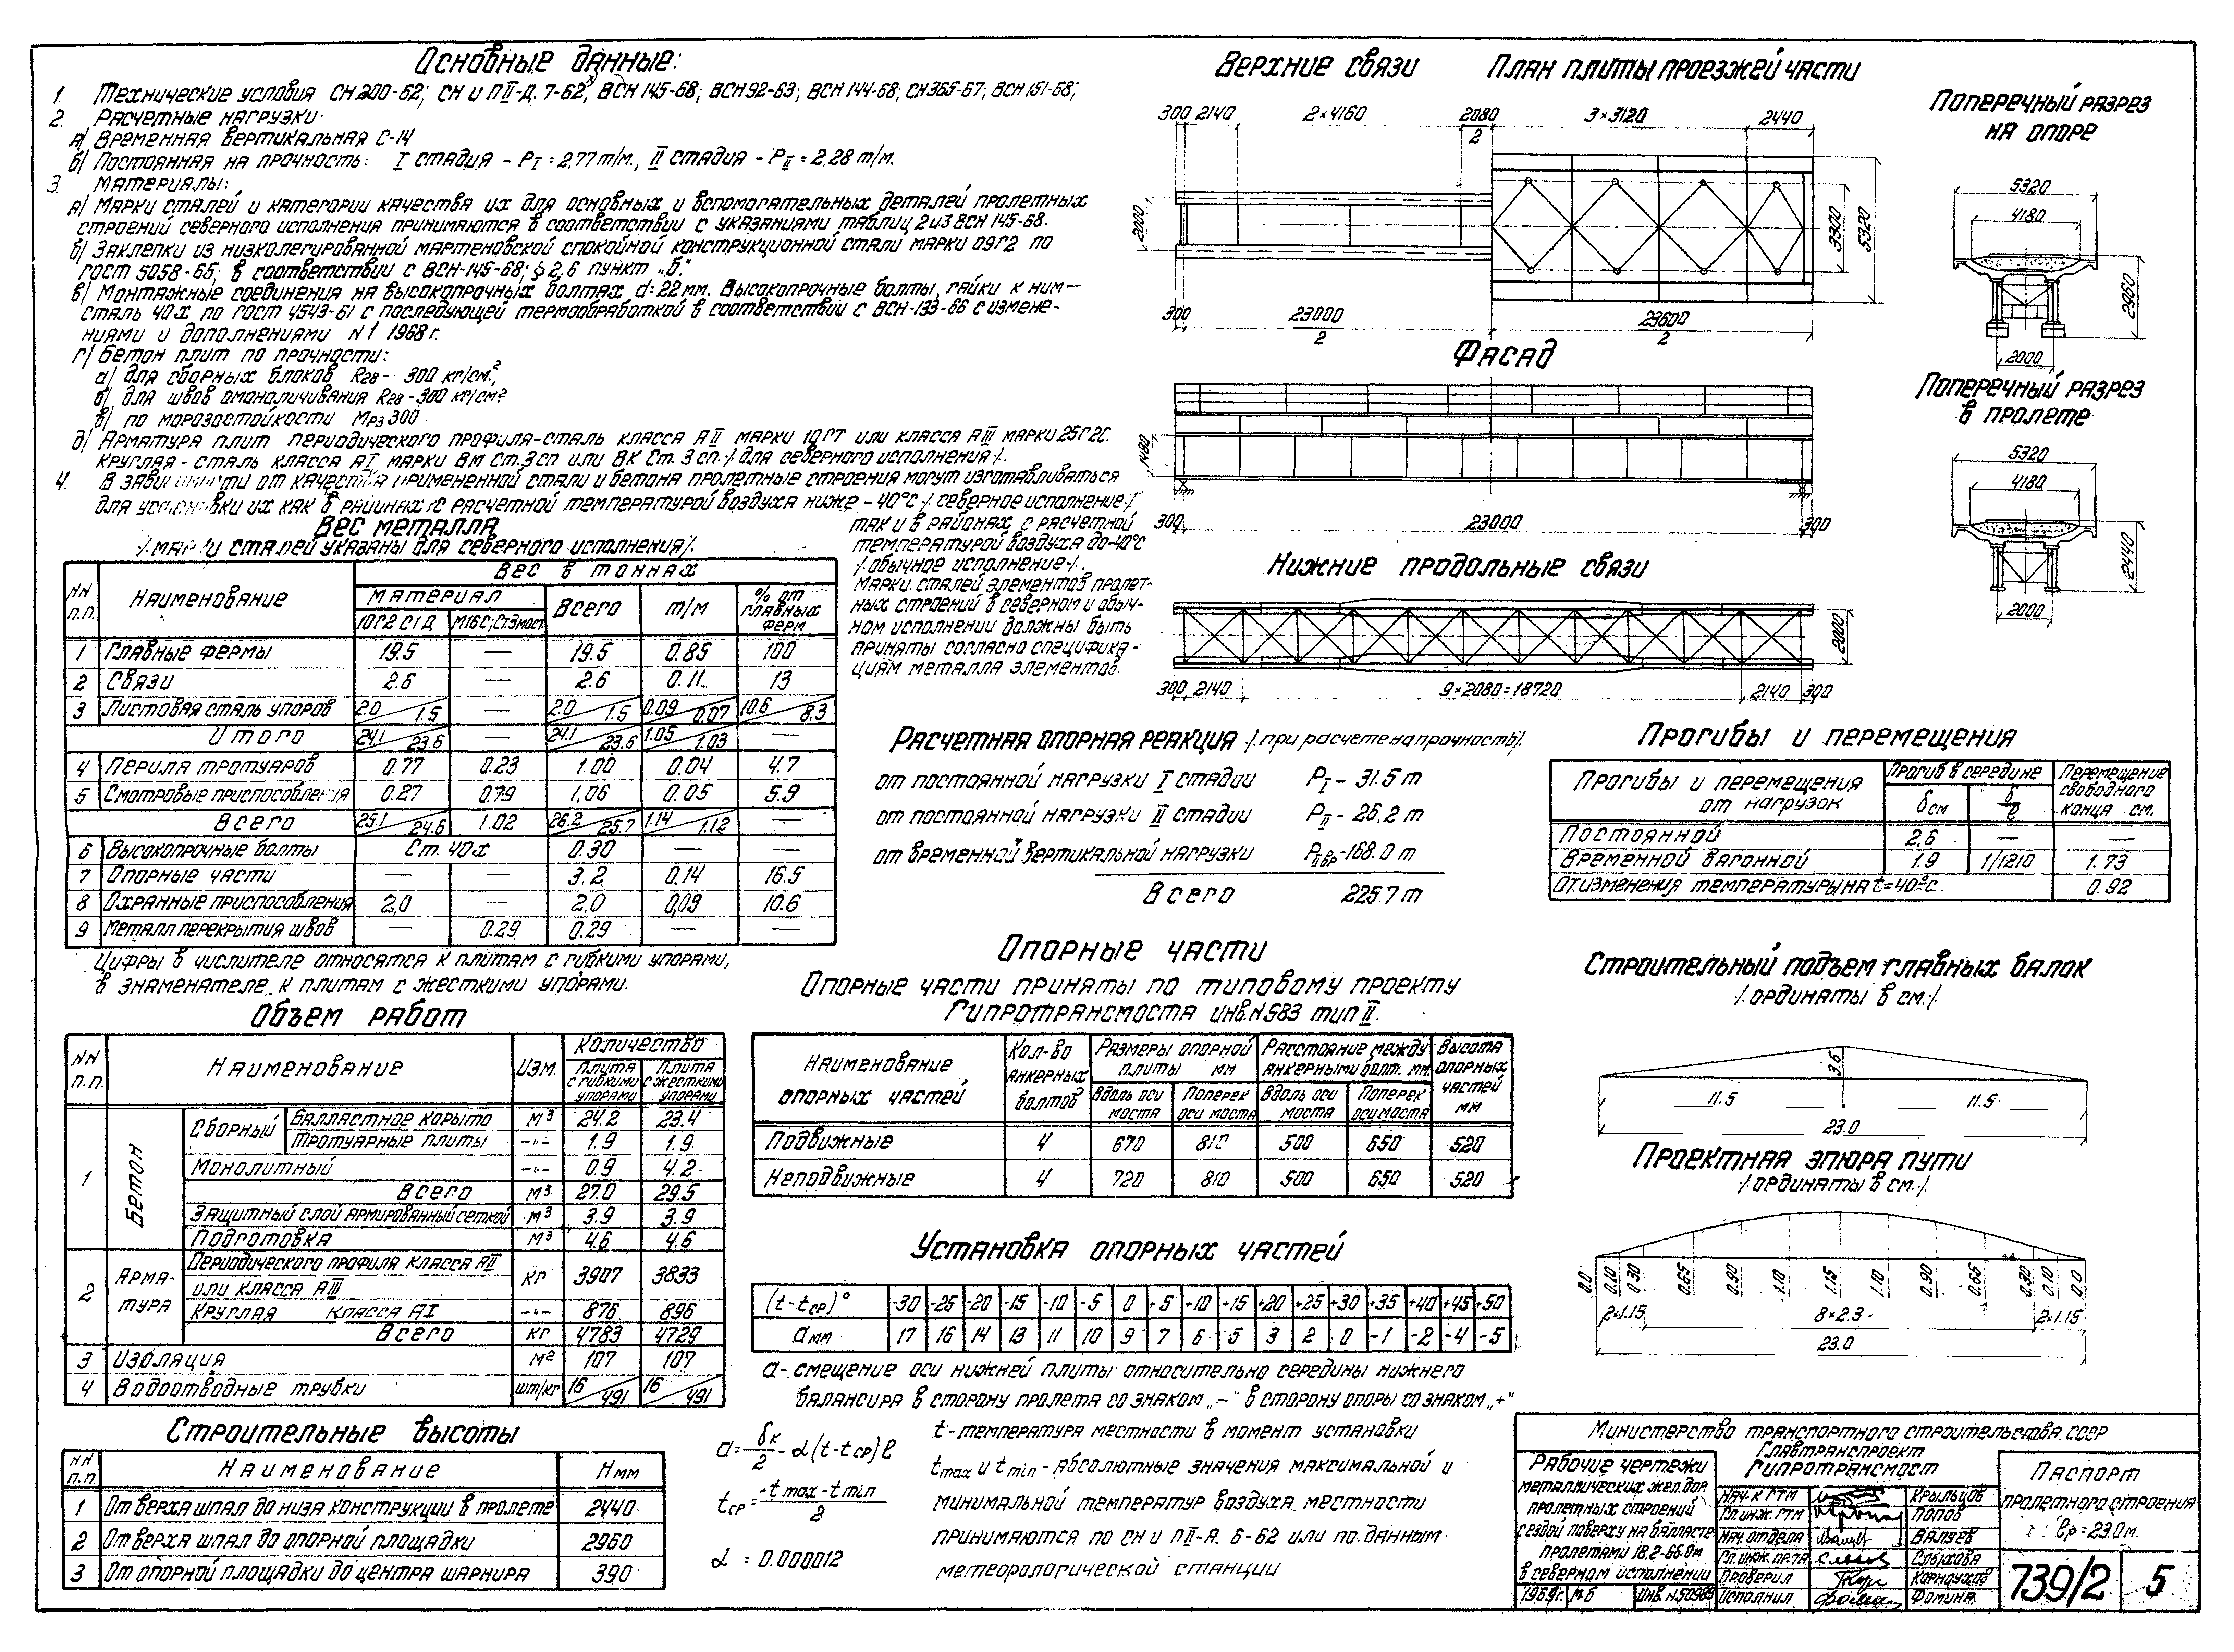 Основные данные:
1. Технические условия СН 200-62; СН и П II-Д. 7-62, ВСН 145-68; ВСН 92-63; ВСН 144-68; СН 365-67; ВСН 151-68;
2. Расчетные нагрузки:
а) Временная вертикальная С-14
б) Постоянная на прочность: I стадия - Р I = 2,77 т/м., II стадия - Р II = 2,28 т/м.
3. Материалы:
а) Марки сталей и категории качества их для основных и вспомогательных деталей пролетных
строений северного исполнения принимаются в соответствии с указаниями таблиц 2 и 3 ВСН 145-68.
б) Заклепки из низколегированной мартеновской спокойной конструкционной стали марки 09Г2 по
ГОСТ 5058-65; в соответствии с ВСН-145-68; § 2.6 пункт „б."
в) Монтажные соединения на высокопрочных болтах d=22 мм. Высокопрочные болты, гайки к ним —
сталь 40Х по ГОСТ 4543-61 с последующей термообработкой в соответствии с ВСН-133-66 с измене-
ниями и дополнениями N 1 1968 г.
г) Бетон плит по прочности:
а) для сборных блоков R28 - 300 кг/см²,
б) для швов омоноличивания R28 - 300 кг/см²
в) по морозостойкости Мрз 300
д) Арматура плит периодического профиля-сталь класса А II марки 10ГТ или класса А III марки 25Г2С.
Круглая - сталь класса А I, марки ВМ Ст. 3 сп или ВК Ст. 3 сп ·/. для северного исполнения ·/.
4. В зависимости от качества примененной стали и бетона пролетные строения могут изготавливаться
для установки их как в районах с расчетной температурой воздуха ниже - 40°С ·/. северное исполнение ·/.
так и в районах с расчетной
температурой воздуха до -40°С
·/. обычное исполнение ·/.
Марки сталей элементов пролет-
ных строений в северном и обыч-
ном исполнении должны быть
приняты согласно специфика-
циям металла элементов.
Вес металла
·/. марки сталей указаны для северного исполнения ·/.
NN п.п. Наименование Вес в тоннах
Материал Всего т/м % от главных ферм
10Г2С1Д М16С; Ст.3мост.
1 Главные фермы 19.5 — 19.5 0.85 100
2 Связи 2.6 — 2.6 0.11 13
3 Листовая сталь упоров 2.0/1.5 — 2.0/1.5 0.09/0.07 10.6/8.3
Итого 24.1/23.6 — 24.1/23.6 1.05/1.03 —
4 Перила тротуаров 0.77 0.23 1.00 0.04 4.7
5 Смотровые приспособления 0.27 0.79 1.06 0.05 5.9
Всего 25.1/24.6 1.02 26.2/25.7 1.14/1.12 —
6 Высокопрочные болты Ст. 40Х 0.30 — —
7 Опорные части — — 3.2 0.14 16.5
8 Охранные приспособления 2,0 — 2,0 0,09 10.6
9 Металл перекрытия швов — 0.29 0.29 — —
Цифры в числителе относятся к плитам с гибкими упорами,
в знаменателе к плитам с жесткими упорами.
Объем работ
NN п.п. Наименование Изм. Количество
Плита с гибкими упорами Плита с жесткими упорами
1 Бетон Сборный Балластное корыто м³ 24.2 23.4
Тротуарные плиты -"- 1.9 1.9
Монолитный -"- 0.9 4.2
Всего м³ 27.0 29.5
Защитный слой армированный сеткой м³ 3.9 3.9
Подготовка м³ 4.6 4.6
2 Арма-тура Периодического профиля класса А II или класса А III кг 3907 3833
Круглая класса А I -"- 876 896
Всего кг 4783 4729
3 Изоляция м² 107 107
4 Водоотводные трубки шт/кг 16/491 16/491
Строительные высоты
NN п.п. Наименование Н мм
1 От верха шпал до низа конструкции в пролете 2440
2 От верха шпал до опорной площадки 2960
3 От опорной площадки до центра шарнира 390
Верхние связи План плиты проезжей части
300 2140 2×4160 2080/2 3×3120 2440
2000 3300 5320
300 23000/2 23600/2
Фасад
1480
300 23000 300
Нижние продольные связи
2000
300 2140 9×2080=18720 2140 300
Поперечный разрез
на опоре
5320
4180
2960
2000
Поперечный разрез
в пролете
5320
4180
2440
2000
Расчетная опорная реакция ·/. при расчете на прочность ·/.
от постоянной нагрузки I стадии Р I - 31.5 т
от постоянной нагрузки II стадии Р II - 26.2 т
от временной вертикальной нагрузки Р II вр - 168.0 т
Всего 225.7 т
Прогибы и перемещения
Прогибы и перемещения от нагрузок Прогиб в середине Перемещение свободного конца см.
δ см δ/ℓ
Постоянной 2,6 — —
Временной вагонной 1.9 1/1210 1.73
От изменения температуры на t=40°С 0.92
Опорные части
Опорные части приняты по типовому проекту
Гипротрансмоста инв. N 583 тип II.
Наименование опорных частей Кол-во анкерных болтов Размеры опорной плиты мм Расстояние между анкерными болт. мм Высота опорных частей мм
Вдоль оси моста Поперек оси моста Вдоль оси моста Поперек оси моста
Подвижные 4 670 810 500 650 520
Неподвижные 4 720 810 500 650 520
Установка опорных частей
(t-tср)° -30 -25 -20 -15 -10 -5 0 +5 +10 +15 +20 +25 +30 +35 +40 +45 +50
а мм 17 16 14 13 11 10 9 7 6 5 3 2 0 -1 -2 -4 -5
а - смещение оси нижней плиты относительно середины нижнего
балансира в сторону пролета со знаком „-" в сторону опоры со знаком „+"
a = δк/2 - α(t-tср)ℓ
tср = +t max - t min / 2
α = 0.000012
t - температура местности в момент установки
t max и t min - абсолютные значения максимальной и
минимальной температур воздуха местности
принимаются по СН и П II-А. 6-62 или по данным
метеорологической станции
Строительный подъем главных балок
·/. ординаты в см. ·/.
3.6
11.5 11.5
23.0
Проектная эпюра пути
·/. ординаты в см. ·/.
0.0 0.10 0.30 0.65 0.90 1.10 1.15 1.10 0.90 0.65 0.30 0.10 0.0
2×1.15 8×2.3 2×1.15
23.0
Министерство транспортного строительства СССР
Главтранспроект
Гипротрансмост
Рабочие чертежи
металлических жел. дор.
пролетных строений
с ездой поверху на балласте
пролетами 18.2-66.0 м
в северном исполнении
1969 г. М-б Инв. N 50969
Нач-к ГТМ Крыльцов
Гл. инж. ГТМ Попов
Нач. отдела Валуев
Гл. инж. пр-та
Проверил Корноухов
Исполнил Фомина
Паспорт
пролетного строения
ℓр = 23.0 м.
739/2 5